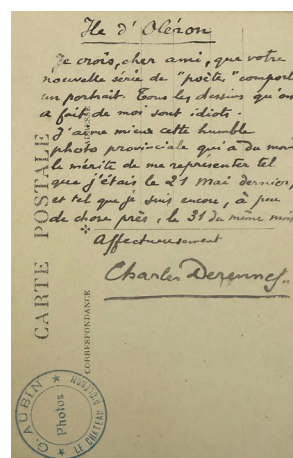 Ile d'Oléron
Je crois, cher ami, que votre
nouvelle série de "poètes" comport
un portrait. Tous les dessins qu'on
a fait de moi sont idiots.
J'aime mieux cette humble
photo provinciale qui a du moin
le mérite de me représenter tel
que j'étais le 21 mai dernier,
et tel que je suis encore, à peu
de chose près, le 31 du même mois
Affectueusement
Charles Derennes
CARTE POSTALE
CORRESPONDANCE
G. AUBIN
Photos
LE CHÂTEAU D'OLÉRON